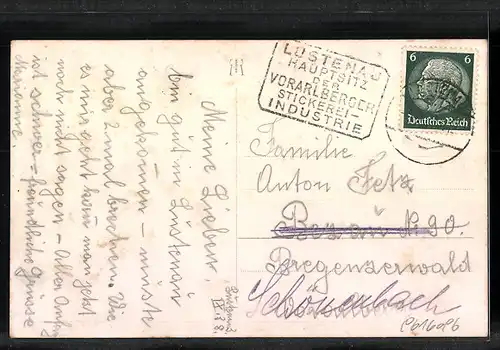 LUSTENAU
HAUPTSITZ
DER
VORARLBERGER
STICKEREI-
INDUSTRIE
6 6
Deutsches Reich
Meine Lieben,
bin gut in Lustenau
angekommen - musste
aber 2 mal brechen. Wie
es mir geht kann man jetzt
noch nicht sagen - Aller Anfang
ist schwer - freundliche Grüsse
Marianne.
Familie
Anton Fetz
Bezau N. 90.
Bregenzerwald
Schönenbach